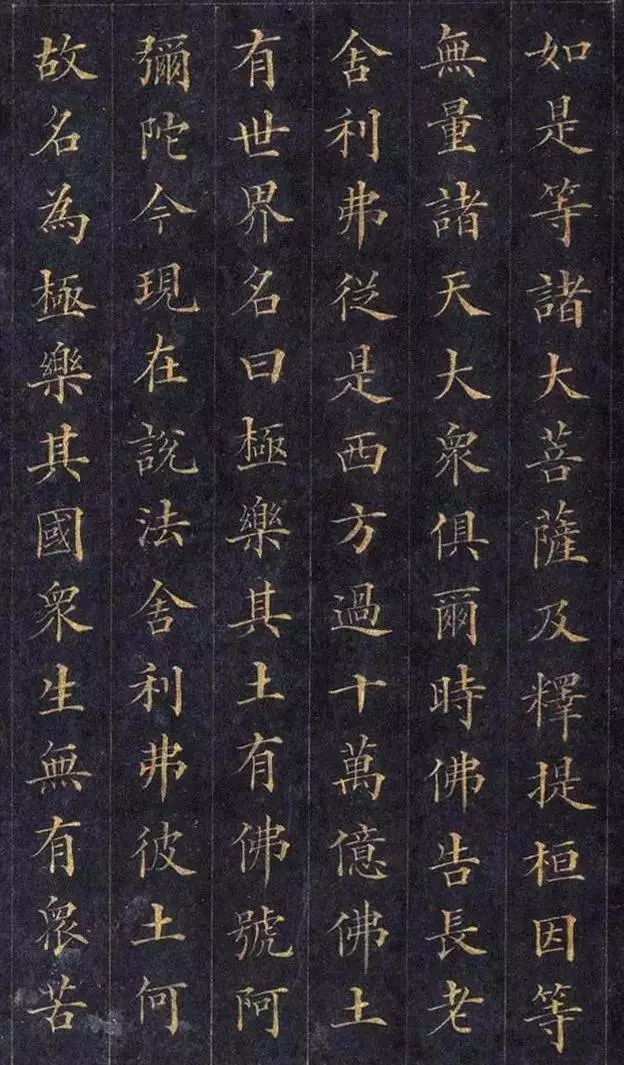 如是等諸大菩薩及釋提桓因等
無量諸天大衆俱爾時佛告長老
舍利弗從是西方過十萬億佛土
有世界名曰極樂其土有佛號阿
彌陀今現在說法舍利弗彼土何
故名為極樂其國衆生無有衆苦